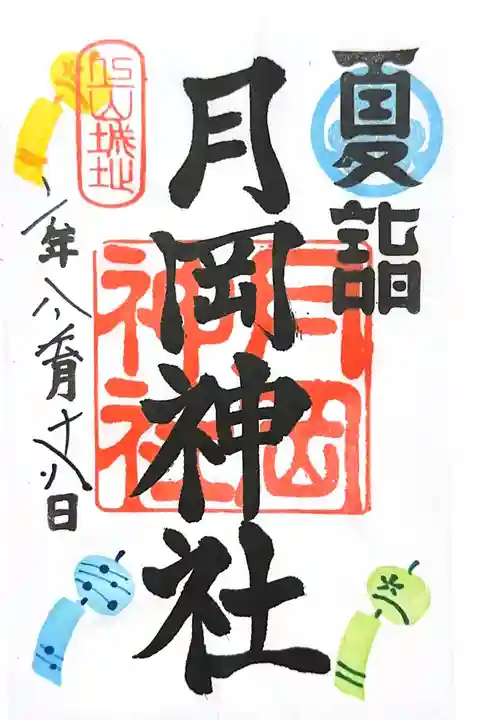 夏詣
月岡神社
月岡
神社
城址
年
月十八日